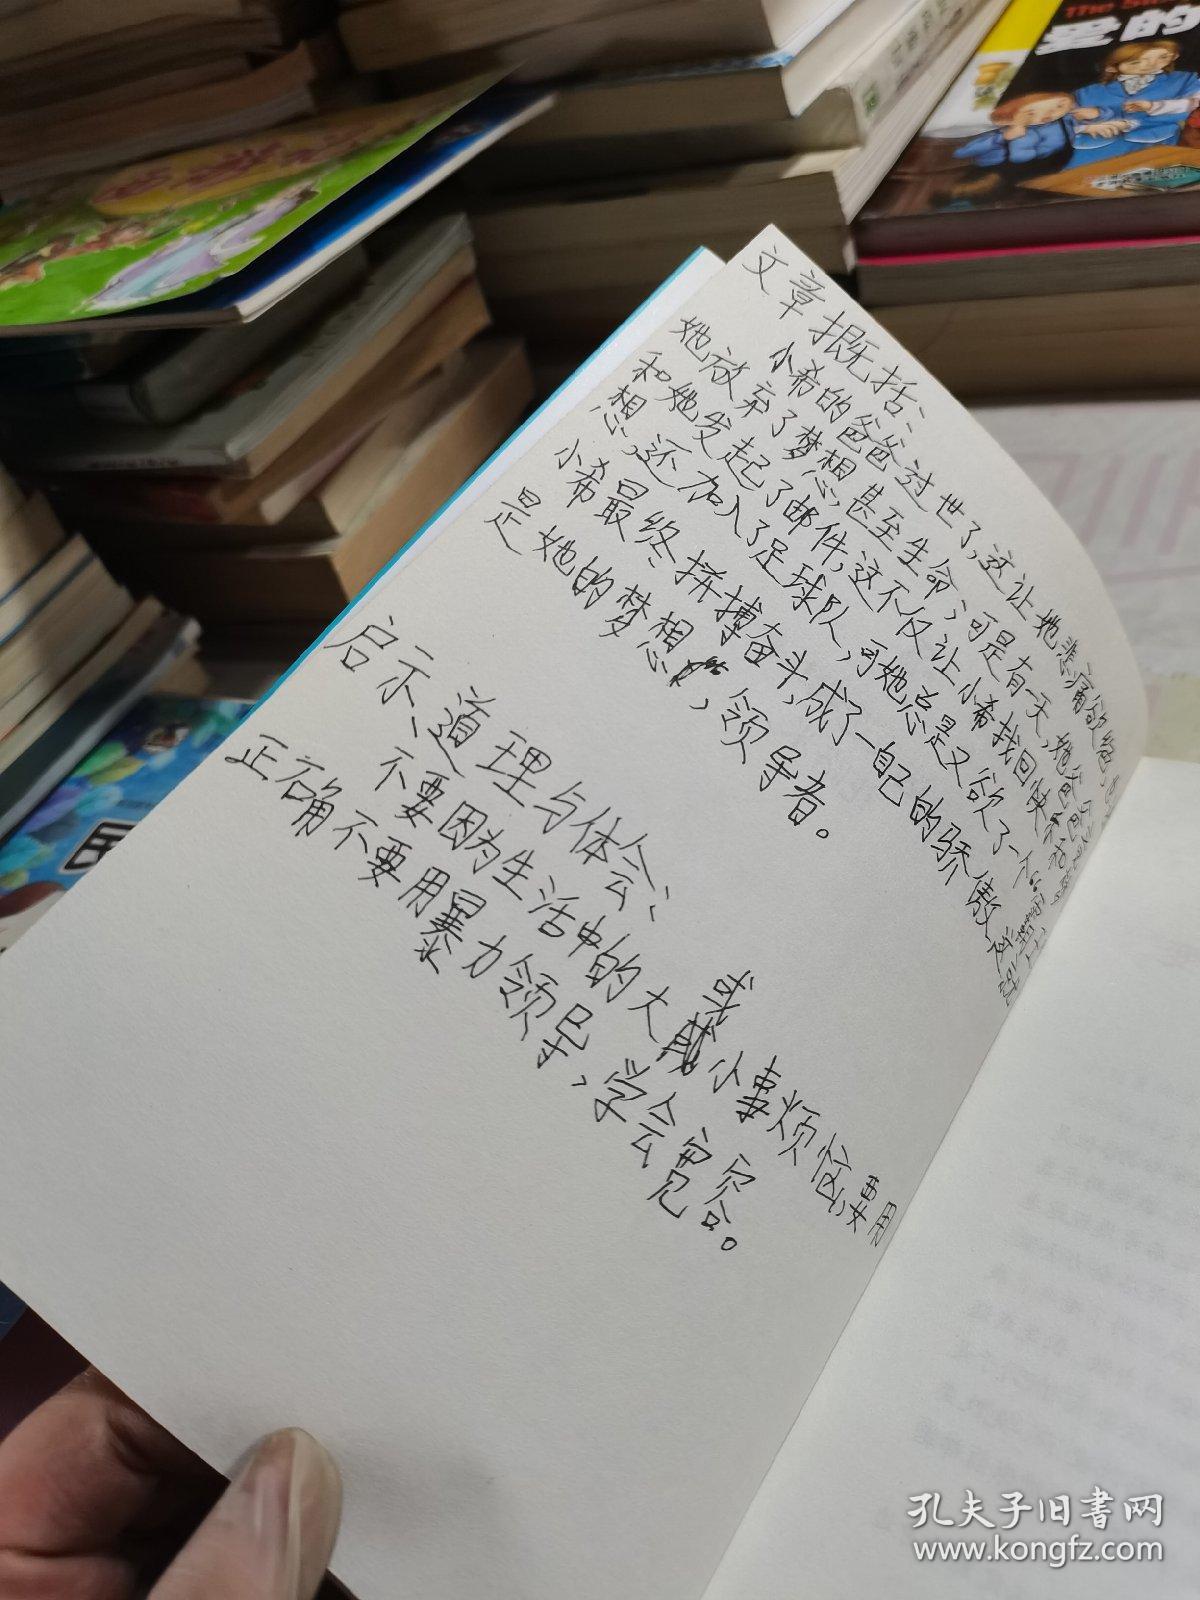 文章概括、
小希的爸爸过世了,这让她悲痛欲绝,
她放弃了梦想,甚至生命,可是有一天,她爸爸
和她发起了邮件,这不仅让小希找回失
想,还加入了足球队,可她总是又欲了一个
小希最终拼搏奋斗,成了一自己的骄傲,这
是她的梦想,领导者。
启示、道理与体会、
不要因为生活中的大或小事烦恼,要用
正确不要用暴力领导,学会宽容。
The S
爱的
孔夫子旧书网
www.kongfz.com